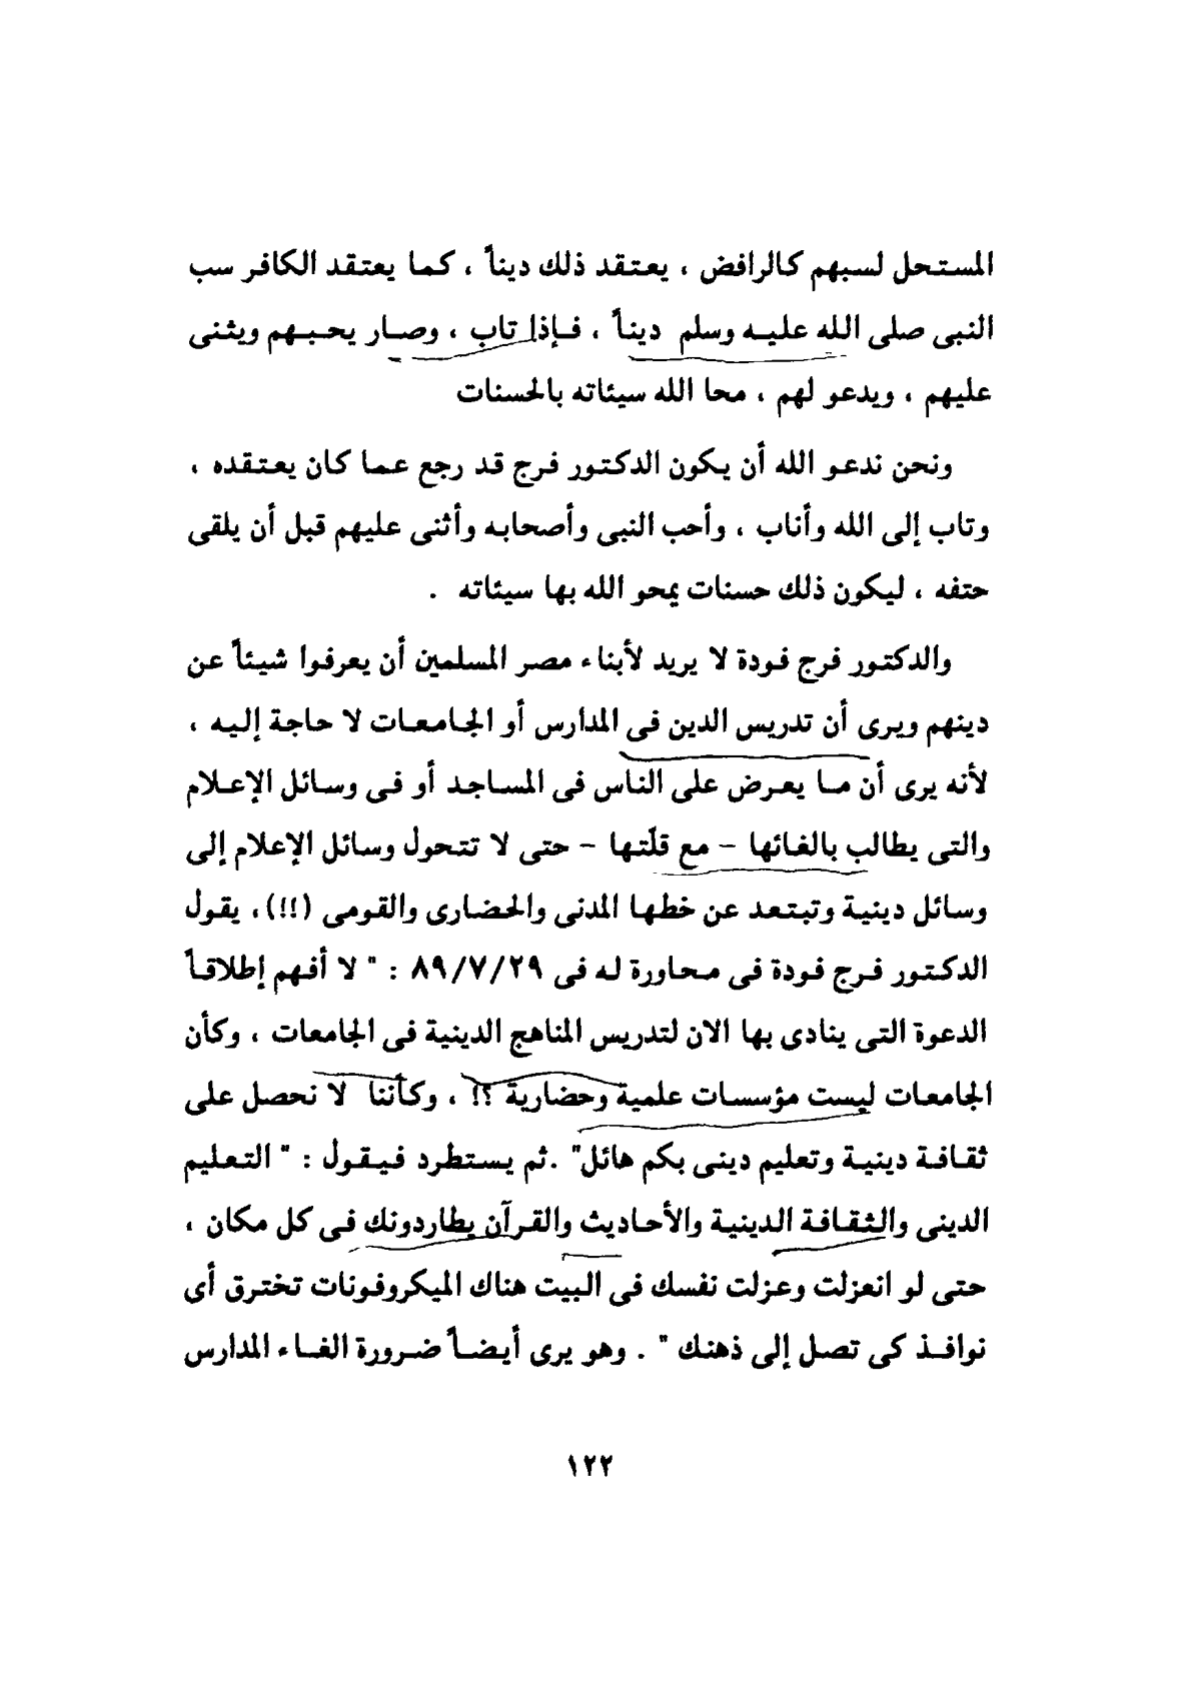 المستحل لسبهم كالرافض ، يعتقد ذلك ديناً ، كما يعتقد الكافر سب
النبى صلى الله عليه وسلم ديناً ، فإذا تاب ، وصار يحبهم ويثنى
عليهم ، ويدعو لهم ، محا الله سيئاته بالحسنات
ونحن ندعو الله أن يكون الدكتور فرج قد رجع عما كان يعتقده ،
وتاب إلى الله وأناب ، وأحب النبى وأصحابه وأثنى عليهم قبل أن يلقى
حتفه ، ليكون ذلك حسنات يمحو الله بها سيئاته .
والدكتور فرج فودة لا يريد لأبناء مصر المسلمين أن يعرفوا شيئاً عن
دينهم ويرى أن تدريس الدين فى المدارس أو الجامعات لا حاجة إليه ،
لأنه يرى أن ما يعرض على الناس فى المساجد أو فى وسائل الإعلام
والتى يطالب بالغائها - مع قلّتها - حتى لا تتحول وسائل الإعلام إلى
وسائل دينية وتبتعد عن خطها المدنى والحضارى والقومى (!!)، يقول
الدكتور فرج فودة فى محاورة له فى ٨٩/٧/٢٩ : " لا أفهم إطلاقاً
الدعوة التى ينادى بها الان لتدريس المناهج الدينية فى الجامعات ، وكأن
الجامعات ليست مؤسسات علمية وحضارية ؟! ، وكأننا لا نحصل على
ثقافة دينية وتعليم دينى بكم هائل" .ثم يستطرد فيقول : " التعليم
الدينى والثقافة الدينية والأحاديث والقرآن يطاردونك فى كل مكان ،
حتى لو انعزلت وعزلت نفسك فى البيت هناك الميكروفونات تخترق أى
نوافذ كى تصل إلى ذهنك " . وهو يرى أيضاً ضرورة الغاء المدارس
١٢٢